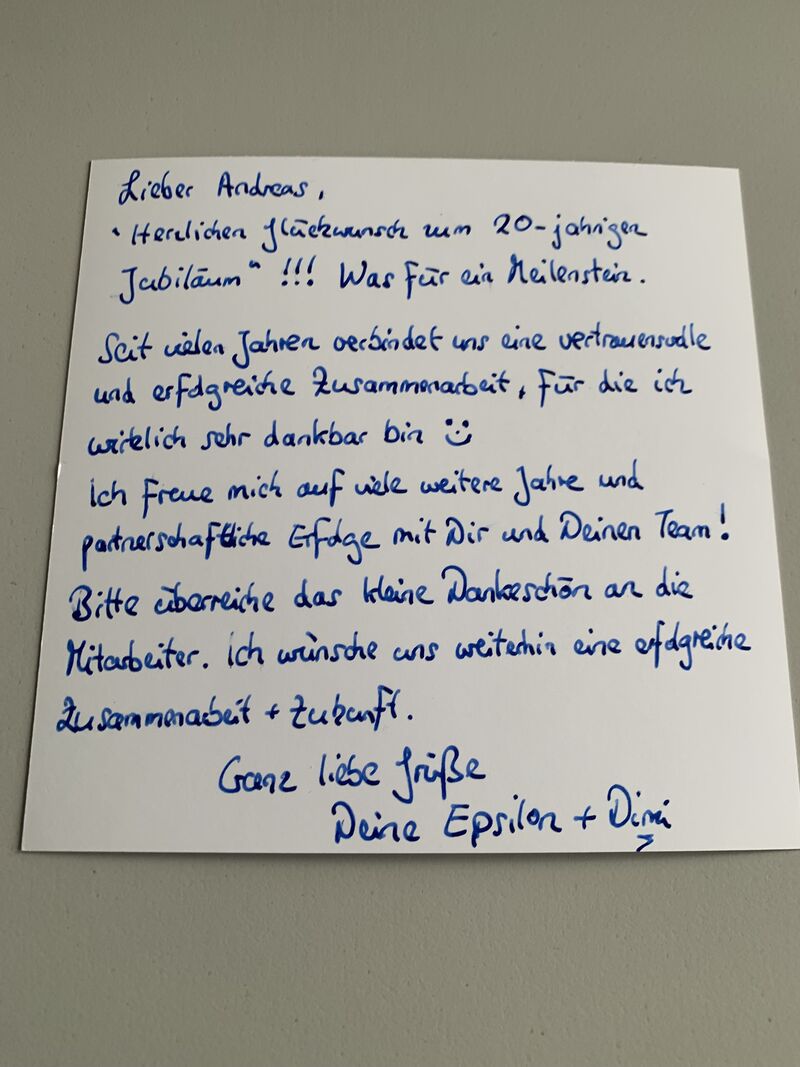 Lieber Andreas,
"Herzlichen Glückwunsch zum 20-jährigen
Jubiläum" !!! Was für ein Meilenstein.
Seit vielen Jahren verbindet uns eine vertrauensvolle
und erfolgreiche Zusammenarbeit, für die ich
wirklich sehr dankbar bin ☺
Ich freue mich auf viele weitere Jahre und
partnerschaftliche Erfolge mit Dir und Deinen Team!
Bitte überreiche das kleine Dankeschön an die
Mitarbeiter. Ich wünsche uns weiterhin eine erfolgreiche
Zusammenarbeit + Zukunft.
Ganz liebe Grüße
Deine Epsilon + Dimi